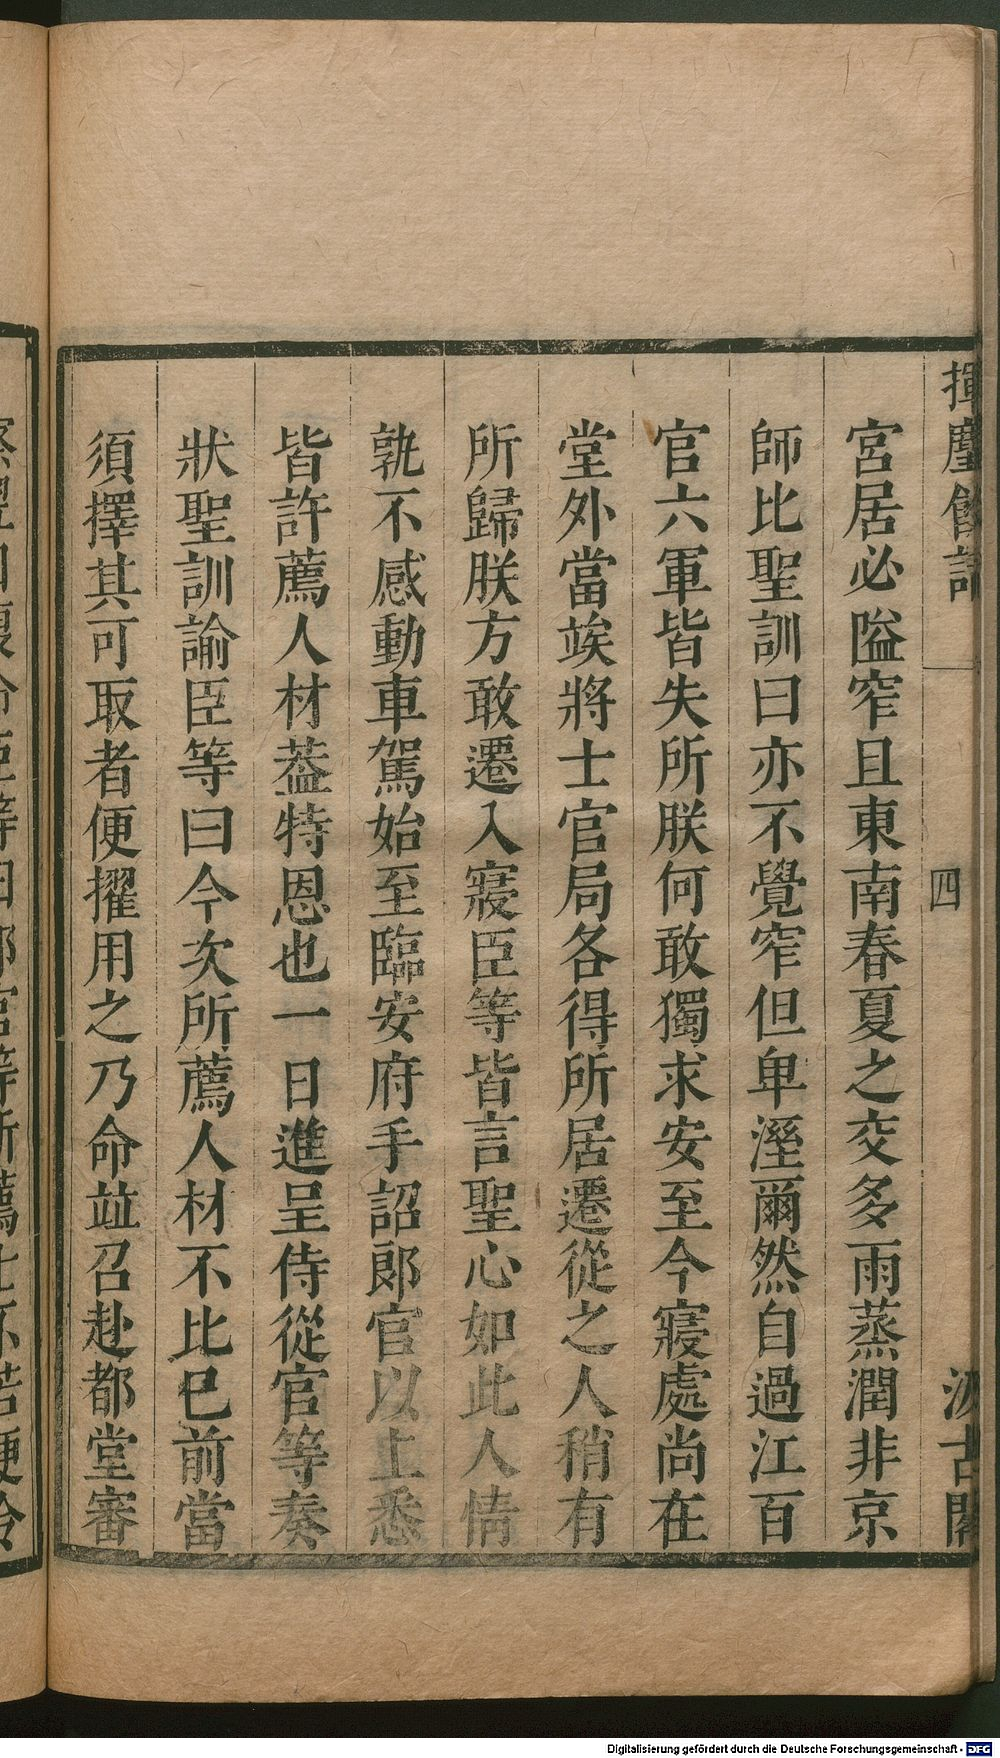 揮麈餘話
四
汲古閣
宮居必隘窄且東南春夏之交多雨蒸潤非京
師比聖訓曰亦不覺窄但卑溼爾然自過江百
官六軍皆失所朕何敢獨求安至今寢處尚在
堂外當竢將士官局各得所居遷從之人稍有
所歸朕方敢遷入寢臣等皆言聖心如此人情
孰不感動車駕始至臨安府手詔郞官以上悉
皆許薦人材葢特恩也一日進呈侍從官等奏
狀聖訓諭臣等曰今次所薦人材不比已前當
須擇其可取者便擢用之乃命竝召赴都堂審
Digitalisierung gefördert durch die Deutsche Forschungsgemeinschaft - DFG